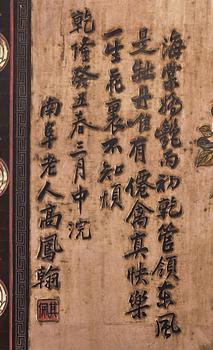 海棠嬌艷雨初乾管領東風
是牡丹惟有僊禽真快樂
一生花裏不知煩
乾隆癸丑春三月中浣
南阜老人高鳳翰